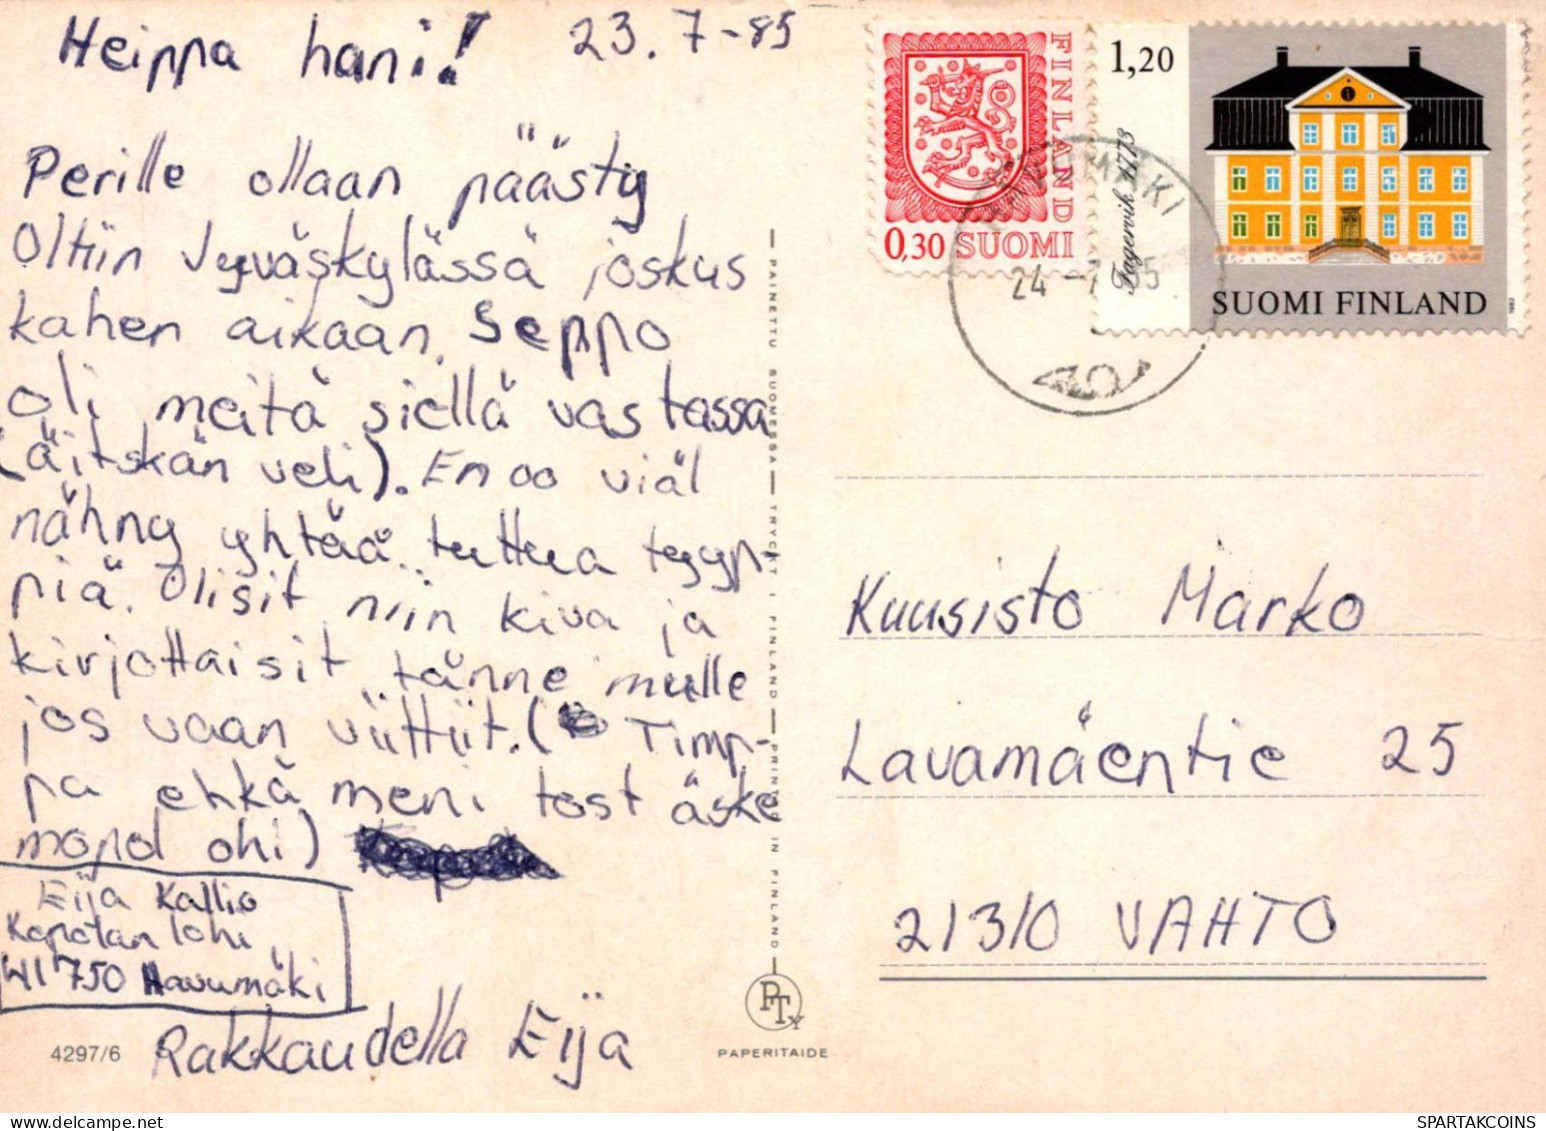 Heippa hani! 23.7-85
Perille ollaan päästy
Oltiin Jyväskylässä joskus
kahen aikaan. Seppo
oli meitä siellä vastassa
(äitskän veli). En oo viäl
nähny yhtää tuttua tyyp-
piä. Olisit niin kiva ja
kirjottaisit tänne mulle
jos vaan viittiit. ( Timp-
pa ehkä meni tost äske
mopol ohi)
Eija Kallio
Kopolan lohi
41750 Havumäki
Rakkaudella Eija
4297/6
PAINETTU SUOMESSA — TRYCKT I FINLAND — PRINTED IN FINLAND
PTY
PAPERITAIDE
FINLAND
0,30 SUOMI
1,20
Fagervik 1773
SUOMI FINLAND
1982
HAVUMÄKI
24 -7 85
Kuusisto Marko
Lavamäentie 25
21310 VAHTO
SPARTAKCOINS